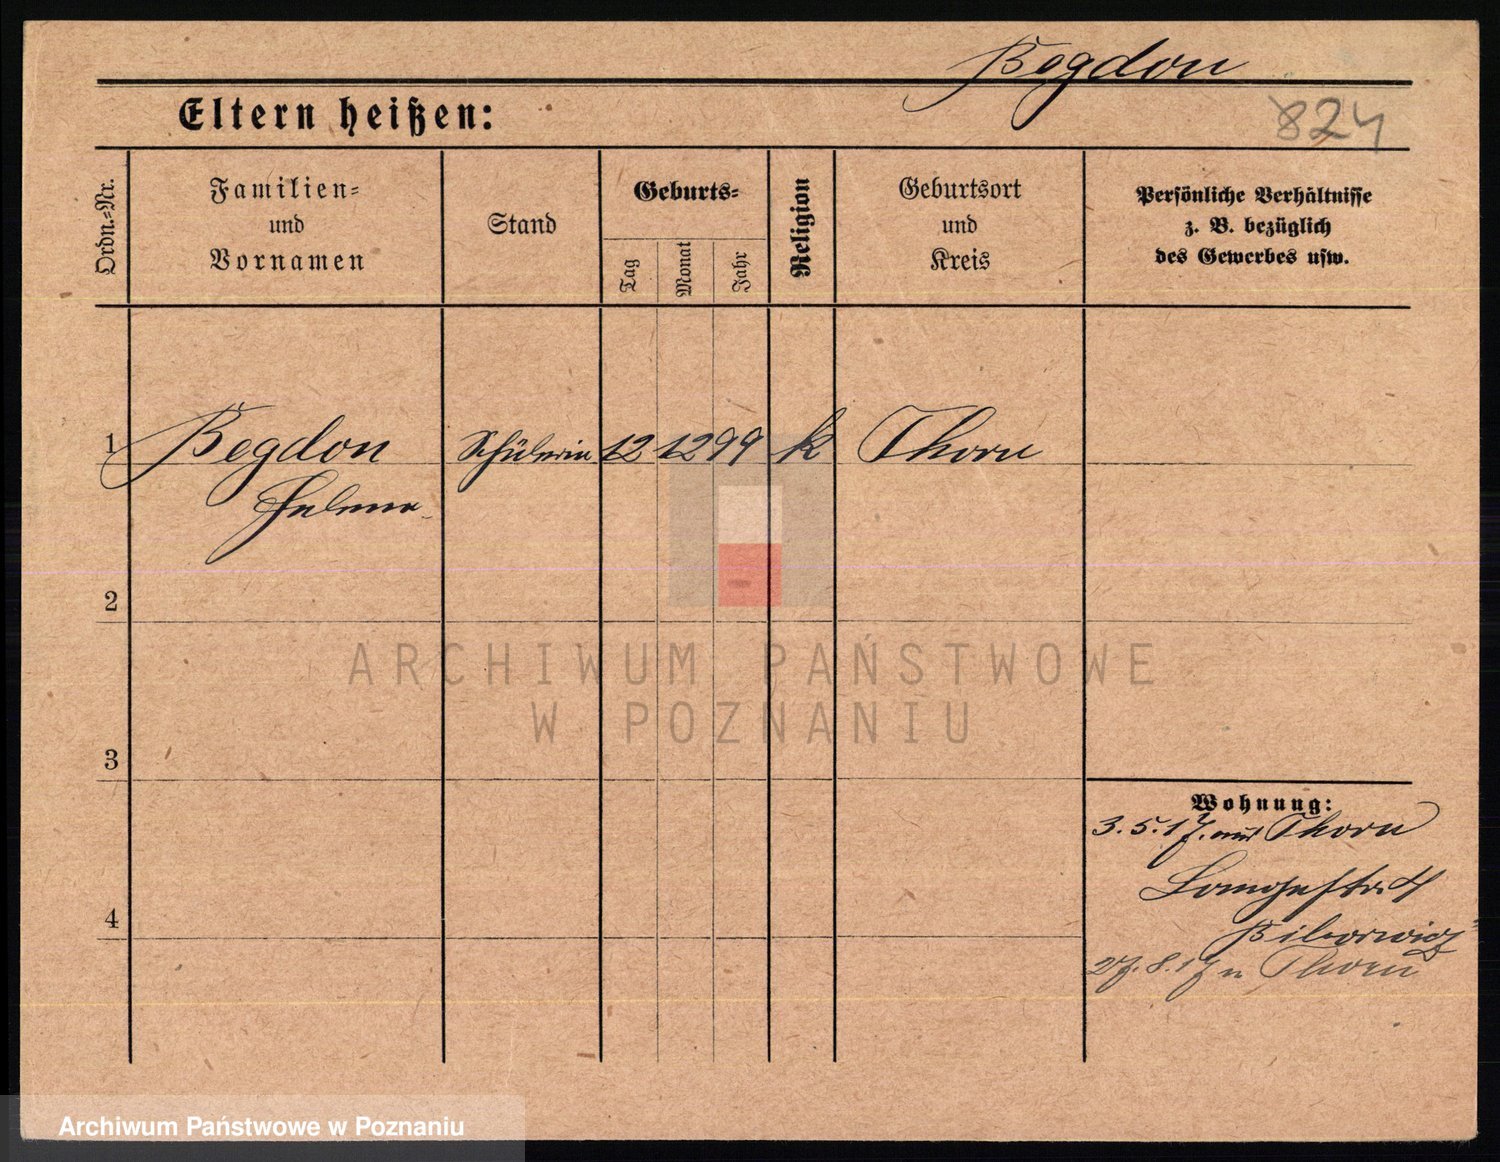 Begdon
Eltern heißen:
824
Ordn.-Nr.
Familien-
und
Vornamen
Stand
Geburts-
Tag
Monat
Jahr
Religion
Geburtsort
und
Kreis
Persönliche Verhältnisse
z. B. bezüglich
des Gewerbes usw.
1 Begdon Schülerin 12 12 99 k Thorn
Helena
2
3
4
Wohnung:
3.5.17. aus Thorn
Langestr. 4
27.8.17 n Thorn
ARCHIWUM PAŃSTWOWE
W POZNANIU
Archiwum Państwowe w Poznaniu